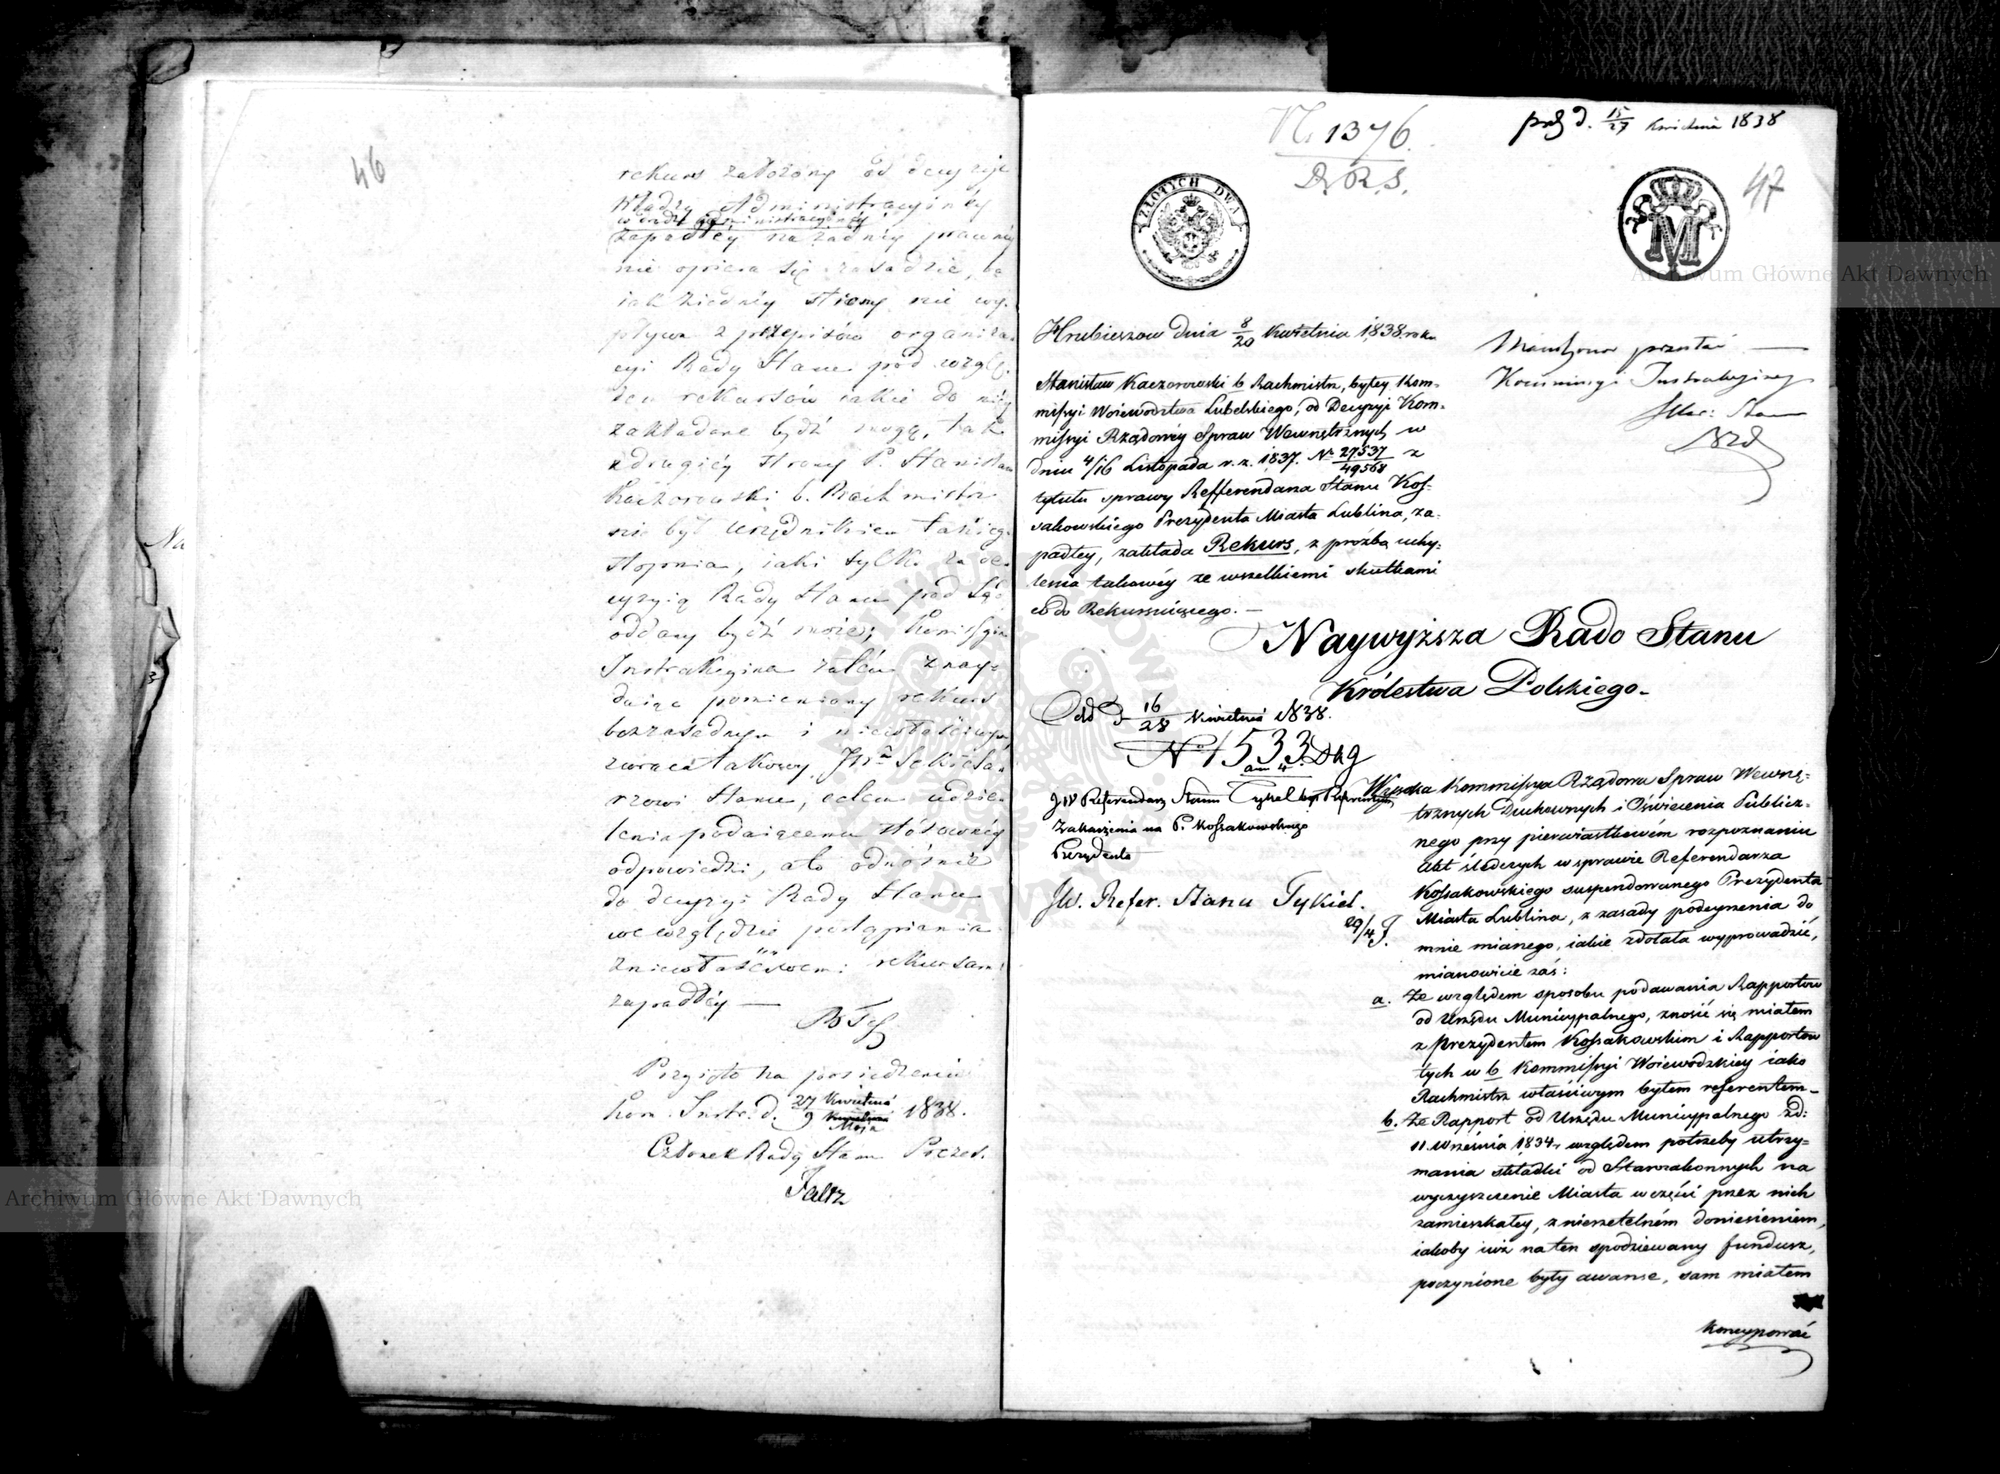 46
rekurs założony od decyzji
Władzy Administracyjnéy
w drodze administracyjnéy
zapadłéy na żadnéy prawnéy
nie opiera się zasadzie, bo
iak ziednéy strony nie wy-
pływa z przepisów organiza-
cyi Rady Stanu pod wzglę-
dem rekursów iakie do niéy
zakładane bydź mogą, tak
zdrugiéy strony P. Stanisław
Kaczorowski b. Rachmistrz
nie był urzędnikiem takieg
stopnia, iaki tylko za de-
cyzyią Rady Stanu pod Są
oddany bydź może; Kommissyia
Instrukcyina zatém znay-
duiąc pomieniony rekurs
bezzasadnym i niewłaściwym,
zwraca takowy JW. Sekreta-
rzowi Stanu, celem udzie-
lenia podaiącemu stósownéy
odpowiedzi, ato odnośnie
do decyzyi Rady Stanu
we względzie postąpienia
z niewłaściwemi rekursami
zapadłéy —
Przyięto na posiedzeniu
Kom. Instr. d. 27 Kwietnia / 9 Maja 1838.
Członek Rady Stanu Prezes.
Faltz
Na
N. 1376.
D. R. S.
prz d. 15/27 Kwietnia 1838
47
ZŁOTYCH DWA
M
Hrubieszow dnia 8/20 Kwietnia 1838 roku
Stanisław Kaczorowski b Rachmistrz, byłey Kom-
missyi Woiewodztwa Lubelskiego, od Decyzyi Kom-
missyi Rządowéy Spraw Wewnętrznych w
dniu 4/16 Listopada r. z. 1837. No 27537/49568 z
tytułu sprawy Refferendarza Stanu Kos-
sakowskiego Prezydenta Miasta Lublina, za-
padłey, zakłada Rekurs, z prozbą uchy-
lenia takowéy ze wszelkiemi skutkami
co do Rekursuiącego. —
przesłać
Kommissyi Instrukcyjney
Sekr: Stanu
Naywyższa Rado Stanu
Królestwa Polskiego.
Odd d 16/28 Kwietnia 1838.
No 1533 Dkg
JW Referendarz Stanu Tykel
Zakarzenia na P. Kossakowskiego
Prezydenta
JW. Refer. Stanu Tykiel.
29/4 J.
Wysoka Kommissya Rządowa Spraw Wewnę-
trznych Duchownych i Oświecenia Publicz-
nego przy pierwiastkowém rozpoznaniu
Akt śledczych w sprawie Referendarza
Kossakowskiego suspendowanego Prezydenta
Miasta Lublina, z zasady podeyrzenia do
mnie mianego, iakie zdołała wyprowadzić,
mianowicie zaś:
a. Ze względem sposobu podawania Rapportów
od Urzędu Municypalnego, znosić się miałem
z Prezydentem Kossakowskim i Rapportow
tych w b Kommissyi Woiewodzkiey iako
Rachmistrz właściwym byłem referentem —
b. Ze Rapport od Urzędu Municypalnego zd:
11 Września 1834 r względem potrzeby utrzy-
mania składki od Starozakonnych na
wyczyszczenie Miasta w części przez nich
zamieszkałey, z nierzetelném doniesieniem,
iakoby iuż na ten spodziewany fundusz,
poczynione były awanse, sam miałem
koncypować
Archiwum Główne Akt Dawnych
Archiwum Główne Akt Dawnych